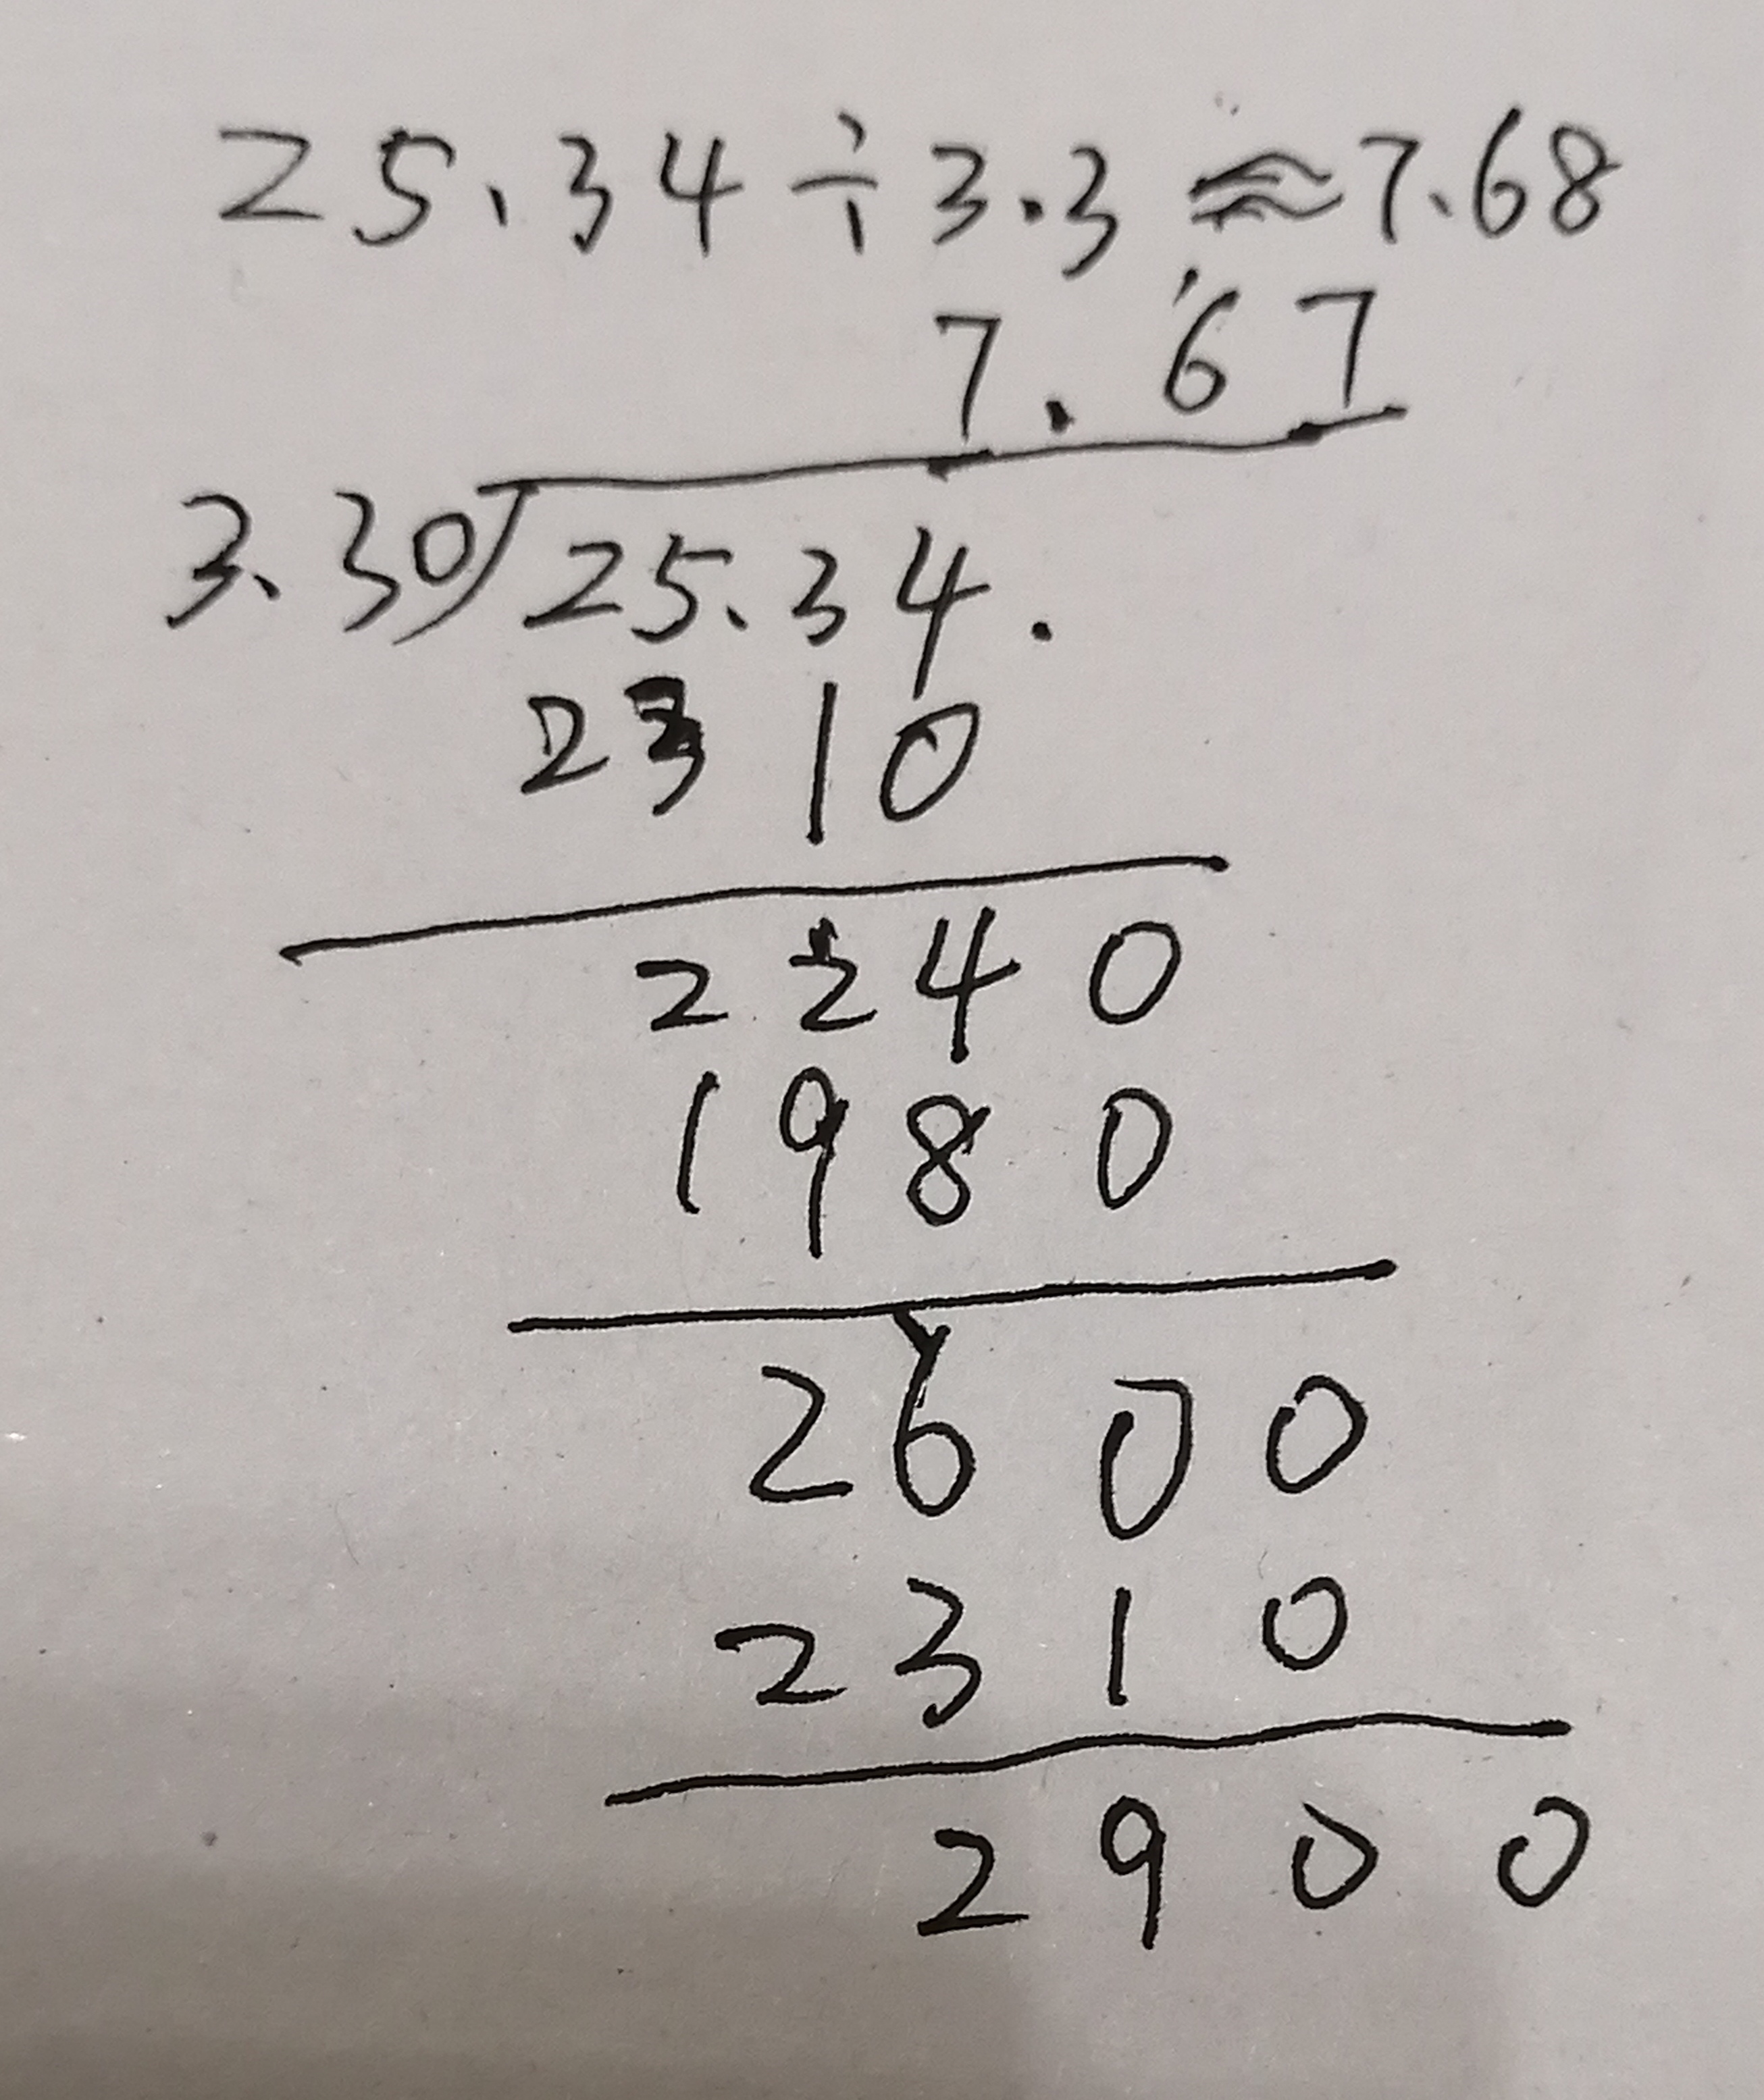 25.34÷3.3≈7.68
7.67
3.30 25.34.
2310
2240
1980
2600
2310
2900